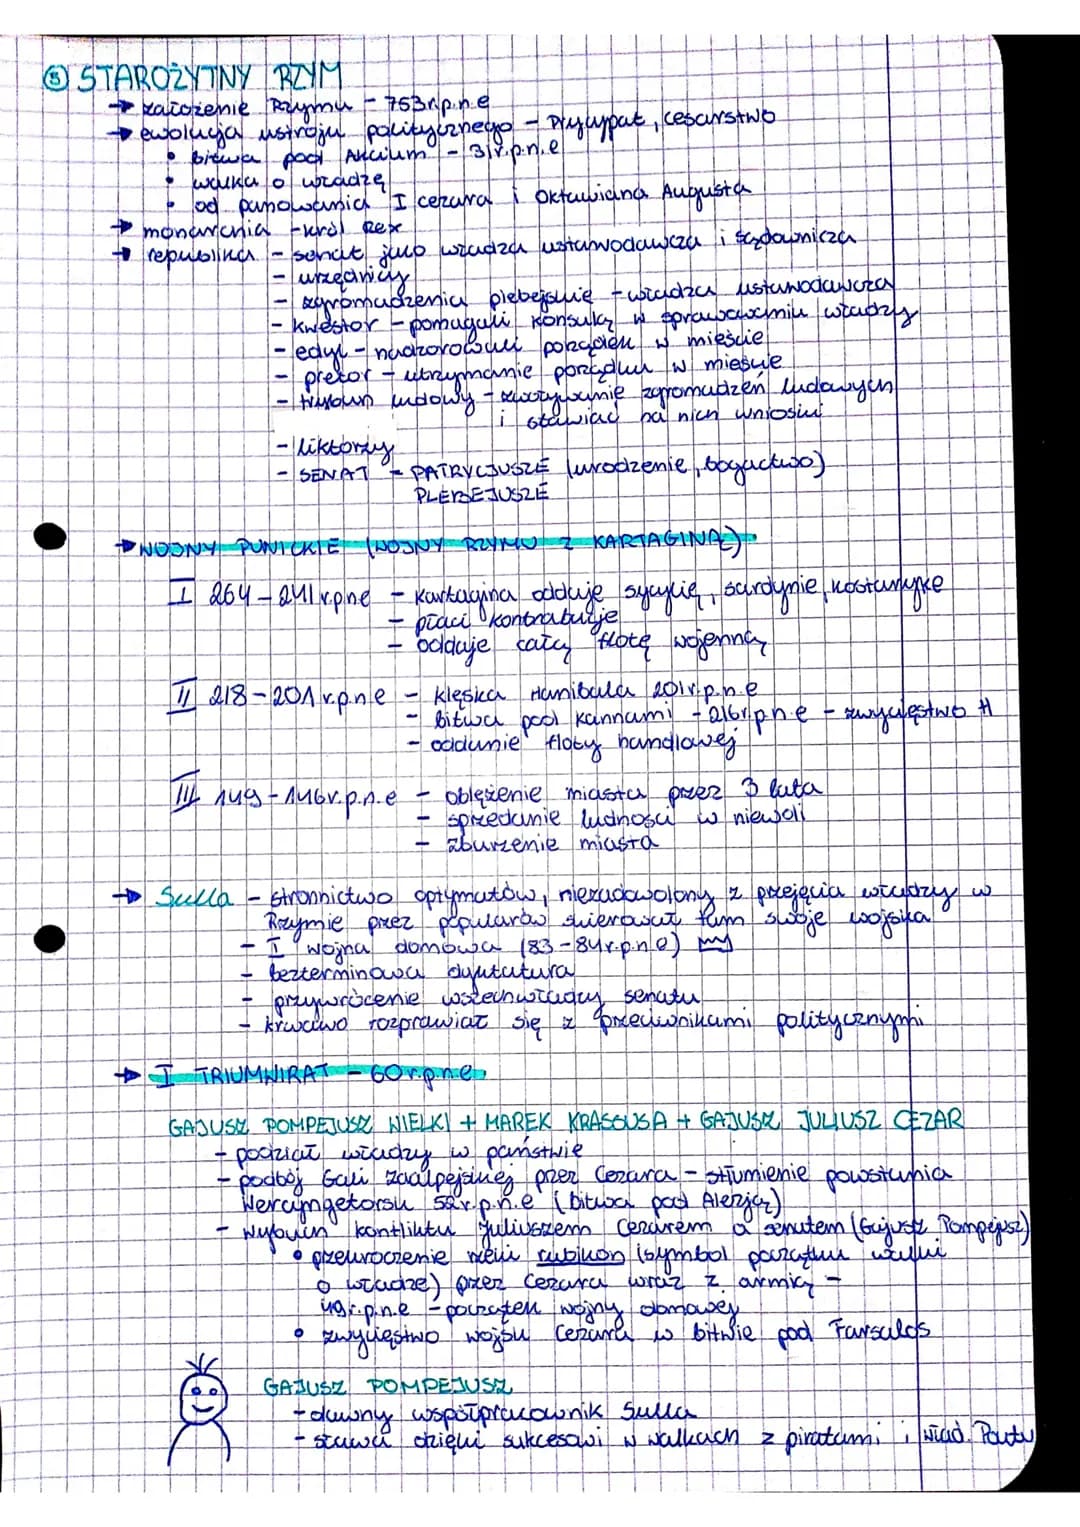 ⑤ STAROŻYTNY RZYM
→ założenie Rzymu - 753r.p.n.e
→ ewolucja ustroju politycznego - pryncypat, cesarstwo
• bitwa pod Akcium - 31r.p.n.e
• walka o władzę
• od panowania I cezara i Oktawiana Augusta
→ monarchia - król Rex
→ republika - senat jako władza ustawodawcza i sądownicza
- urzędnicy
- zgromadzenia plebejskie - władza ustawodawcza
- kwestor - pomagali konsulą w sprawowaniu władzy
- edyl - nadzorowali porządek w mieście
- pretor - utrzymanie porządku w mieście
- trybun ludowy - zwoływanie zgromadzeń ludowych
i stawiać na nich wnioski
- liktorzy
- SENAT - PATRYCJUSZE (urodzenie, bogactwo)
PLEBEJUSZE
→ WOJNY PUNICKIE (WOJNY RZYMU Z KARTAGINĄ)
I 264-241r.pne - Kartagina oddaje sycylię, sardynie,
- płaci kontrabucje
- oddaje całą flotę wojenną
II 218-201r.p.n.e - klęska Hanibala 201r.p.n.e
- bitwa pod kannami - 216r.p.n.e - zwycięstwo H
- oddanie floty handlowej
III 149-146r.p.n.e - oblężenie miasta przez 3 lata
- sprzedanie ludności w niewoli
- zburzenie miasta
→ Sulla - stronnictwo optymatów, niezadowolony z przejęcia władzy w
Rzymie przez popularów skierował tam swoje wojska
- I wojna domowa (83-84r.p.n.e)
- bezterminowa dyktatura
- przywrócenie wszechwładzy senatu
- krwawo rozprawiał się z przeciwnikami politycznymi
→ I TRIUMWIRAT - 60r.p.n.e.
GAJUSZ POMPEJUSZ WIELKI + MAREK KRASSUSA + GAJUSZ JULIUSZ CEZAR
- podział władzy w państwie
- podbój Gali zaalpejskiej przez Cezara - stłumienie powstania
Wercyngetorsu 52r.p.n.e (bitwa pod Alezją)
- wybuch konfliktu juliuszem cezarem a senatem (Gajusz Pompejusz)
• przekroczenie rzeki rubikon (symbol początku walki
o władze) przez Cezara wraz z armią -
49r.p.n.e - początek wojny domowej
• zwycięstwo wojsk Cezara w bitwie pod Farsalos
GAJUSZ POMPEJUSZ
- dawny współpracownik Sulla
- sława dzięki sukcesowi w walkach z piratami i Pontu